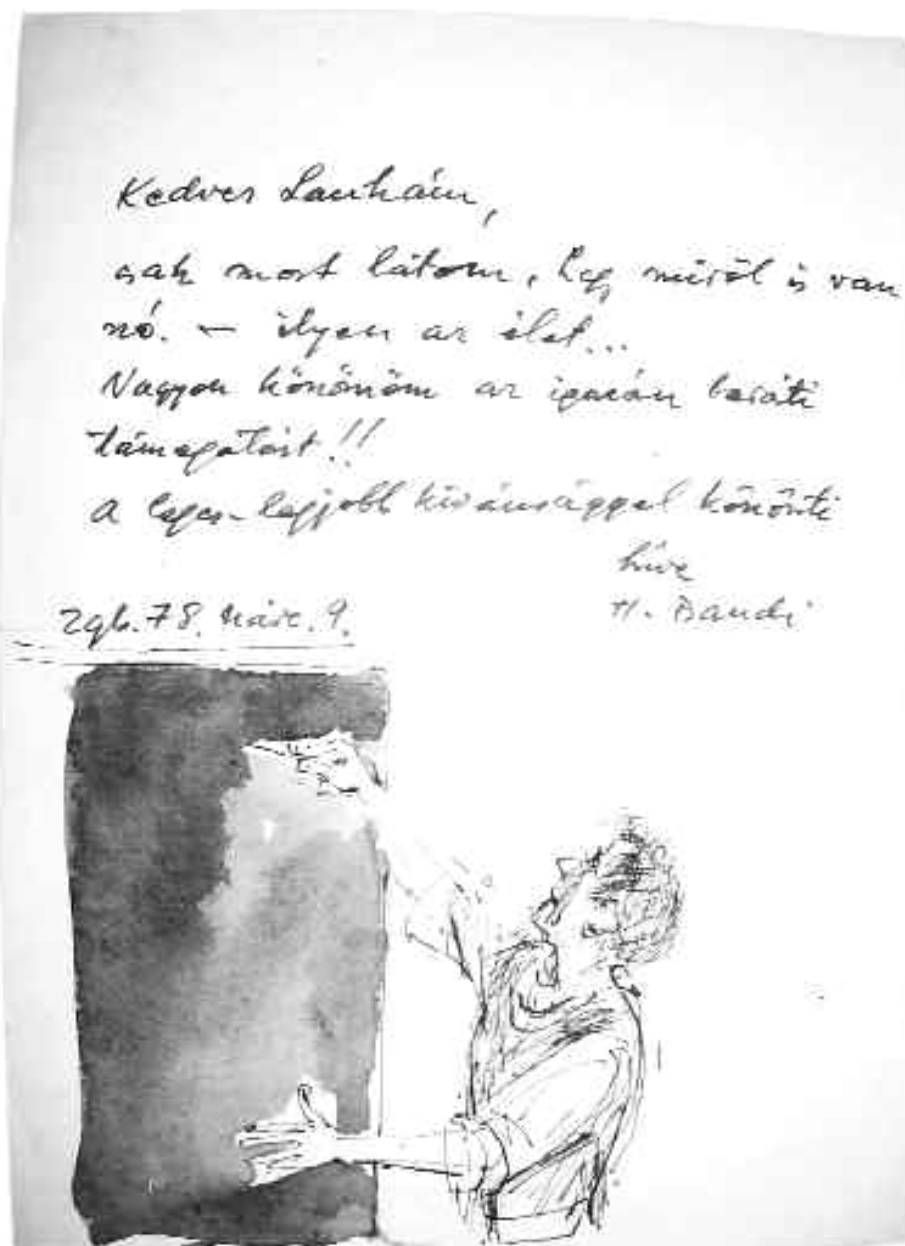 Kedves
csak most látom, hogy miről is van
szó. — ilyen az élet...
Nagyon köszönöm az igazán baráti
támogatást!!
A leges-legjobb kívánsággal köszönti
híve
H. Bandi
Zgb. 78. márc. 9.